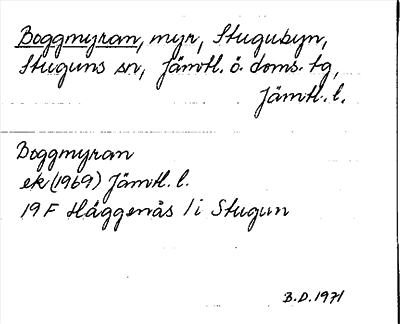 Boggmyran, myr, Stugubyn,
Stuguns sn, Jämtl. ö. doms. tg,
Jämtl. l.
Boggmyran
ek (1969) Jämtl. l.
19 F Häggenås / i Stugun
B.D. 1971